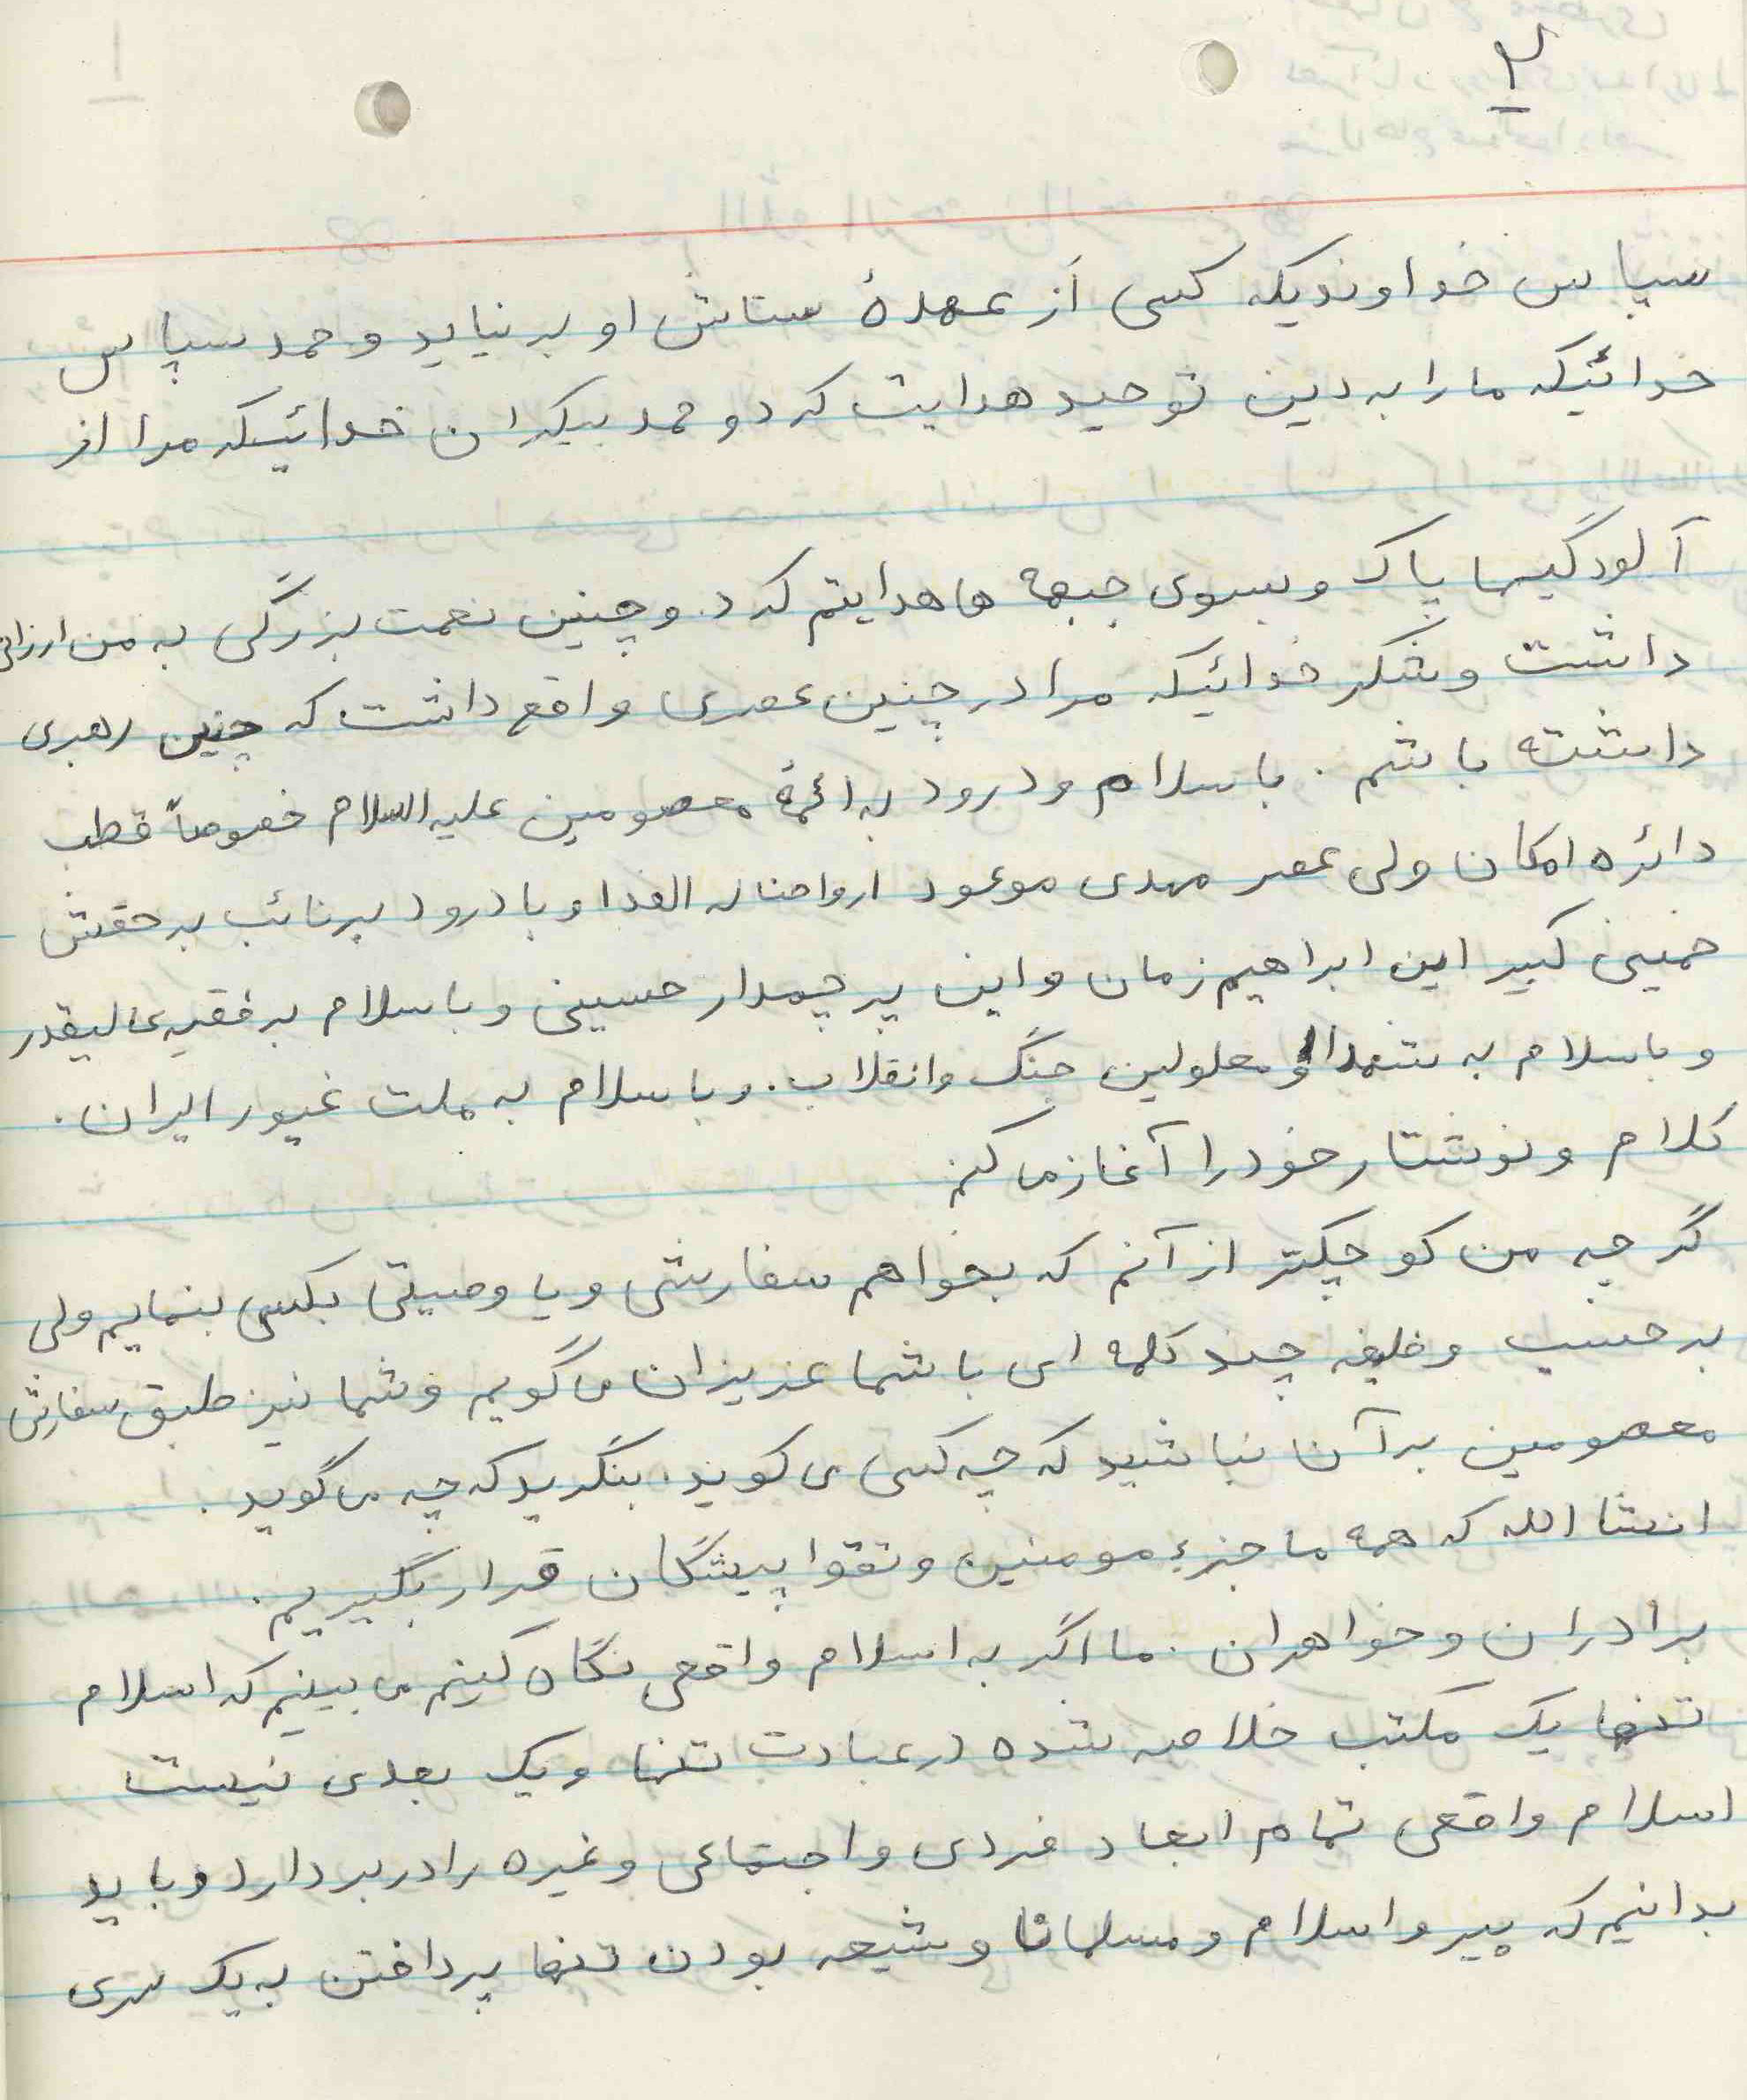 ۲
سپاس خداوندیکه کسی از عهدهٔ ستاش او برنیاید و حمد سپاس
خدائیکه ما را به دین توحید هدایت کرد و حمد بیکران خدائیکه مرا از
آلودگیها پاک و بسوی جبهه ها هدایتم کرد. و چنین نعمت بزرگی به من ارزانی
داشت و شکر خدائیکه مرا در چنین عصری واقع داشت که چنین رهبری
داشته باشم. با سلام و درود به ائمهٔ معصومین علیه السلام خصوصاً قطب
دائره امکان ولی عصر مهدی موعود ارواحنا له الفدا و با درود بر نائب بر حقش
خمینی کبیر این ابراهیم زمان و این پرچمدار حسینی و با سلام بر فقیه عالیقدر
و با سلام به شهدا و معلولین جنگ و انقلاب. و با سلام به ملت غیور ایران.
کلام و نوشتار خود را آغاز می کنم
گر چه من کوچکتر از آنم که بخواهم سفارشی و یا وصیتی بکسی بنمایم ولی
بر حسب وظیفه چند کلمه ای با شما عزیزان می گویم و شما نیز طبق سفارش
معصومین بر آن نباشید که چه کسی می گوید. بنگرید که چه می گوید.
انشا الله که همه ما جزء مومنین و تقوا پیشگان قرار بگیریم.
برادران و خواهران. ما اگر به اسلام واقعی نگاه کنیم می بینیم که اسلام
تنها یک مکتب خلاصه شده در عبادت تنها و یک بعدی نیست
اسلام واقعی تمام ابعاد فردی و اجتماعی و غیره را در بر دارد و باید
بدانیم که پیرو اسلام و مسلمانا و شیعه بودن تنها پرداختن به یک سری